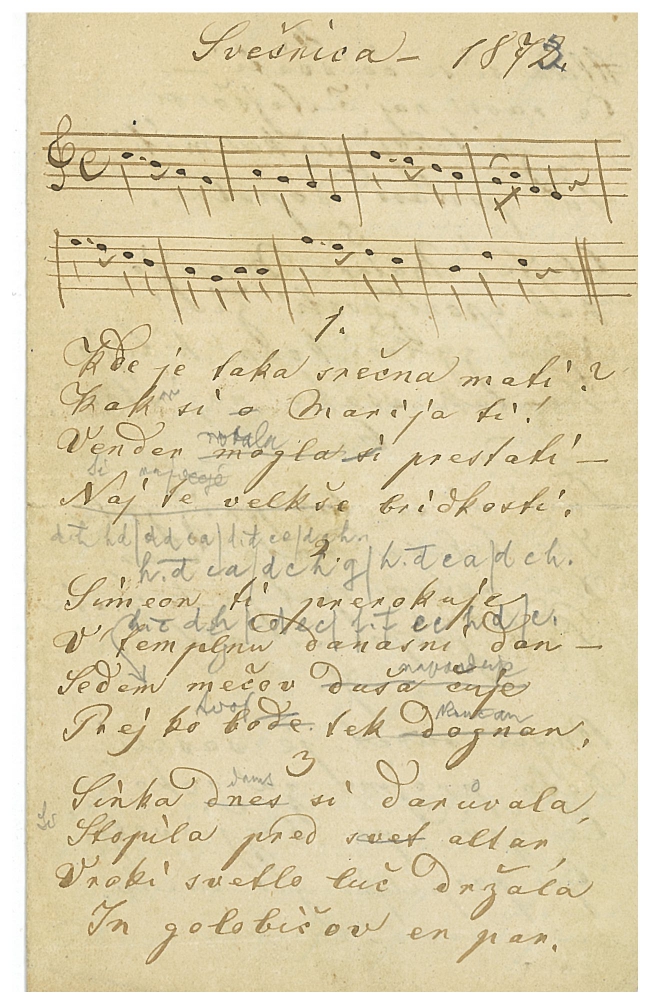 Svešnica – 1873.
1.
Kde je taka srečna mati?
Kak si o Marija ti!
Vender mogla si prestati –
Naj te velkše bridkosti.
2.
h. d ca | d c h g | h. d c a | d c h.
Simeon ti prerokuje
V templnu danasni dan –
Sedem mečov dusa čuje
Prej ko bode tek dognan.
3
Sinka dnes si daruvala,
Stopila pred svet altar,
Vroki svetlo luč držala
In golobičov en par.